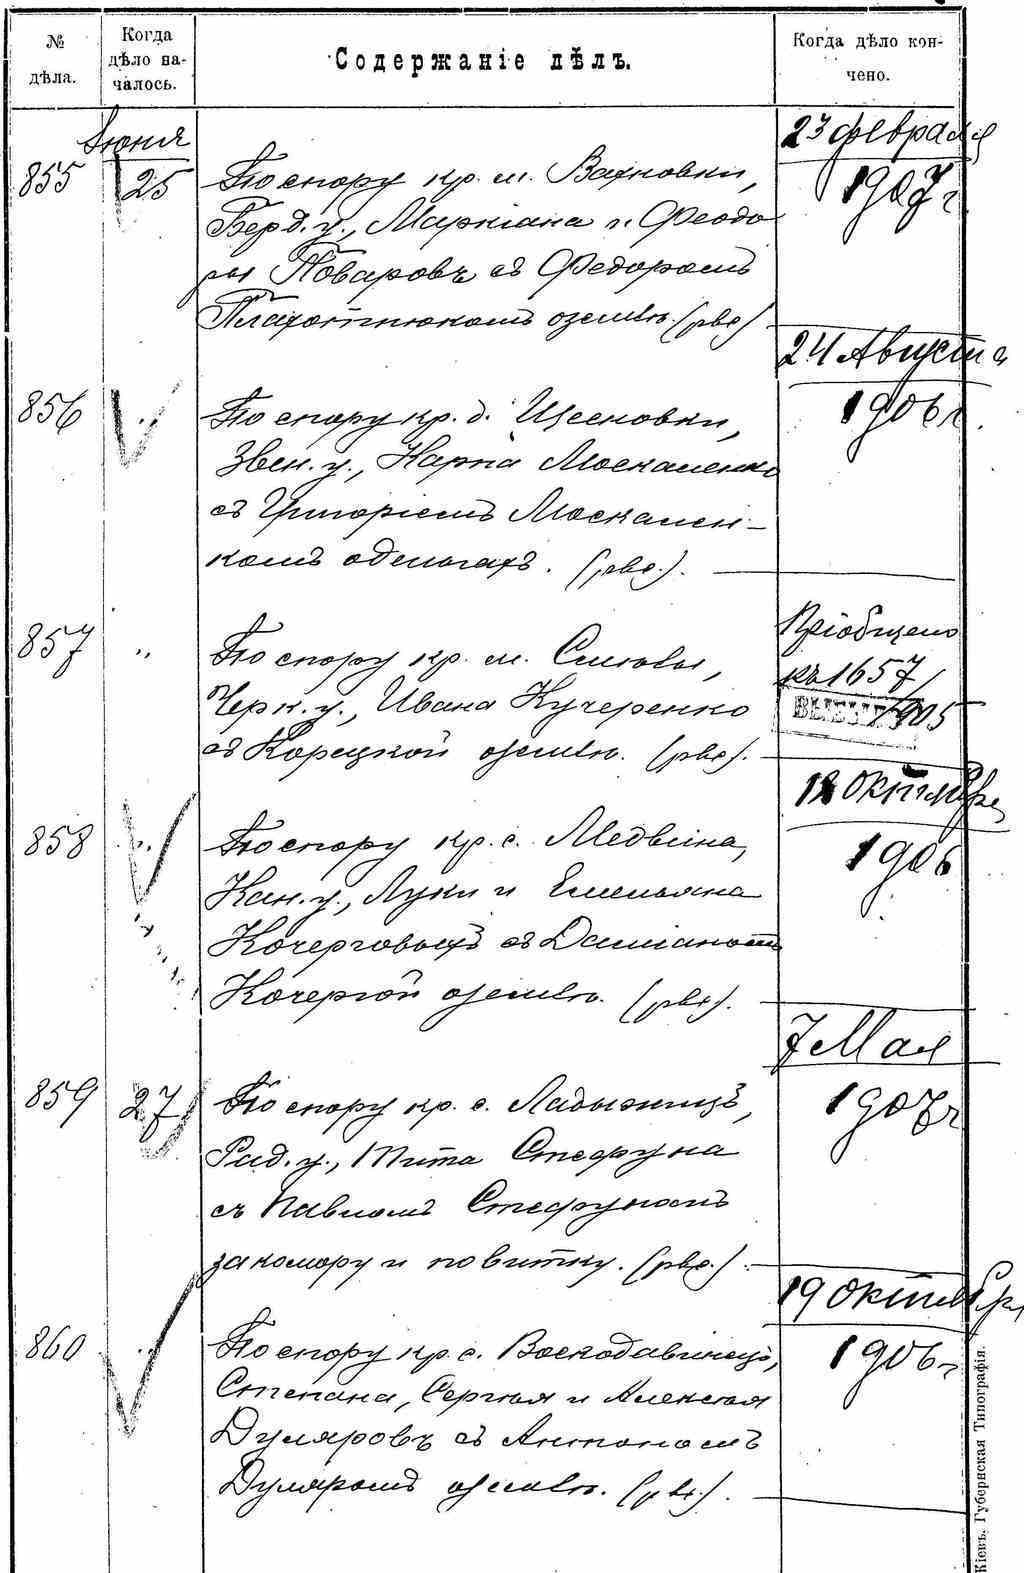 № дѣла.
Когда дѣло на-
чалось.
Содержаніе дѣлъ.
Когда дѣло кон-
чено.
Іюня
855
25
По спору кр. м. Вахновки,
Берд. у., Маркіана и Феодо
ры Поваровъ съ Федоромъ
Плахотнюкомъ о землѣ.
23 февраля
1907 г.
856
"
По спору кр. д.
Звен. у., Карпа Москаленко
съ Григоріемъ Москален-
комъ о деньгахъ.
24 Августа
1906 г.
857
"
По спору кр. м. Смѣлы,
Черк. у., Ивана Кучеренко
съ Корецкой о землѣ.
Пріобщено
къ 1657/
1905
858
"
По спору кр. с. Медвина,
Кан. у., Луки и Емельяна
Кочерговыхъ съ Даміаномъ
Кочергой о землѣ.
18 Октября
1906
859
27
По спору кр. с. Ладыжицъ,
Рад. у., Тита Стефуна
съ Павломъ Стефуномъ
за комору и повитку.
7 Мая
1907 г.
860
"
По спору кр. с. Воскодавинецъ,
Степана, Сергѣя и Алексѣя
Дуляровъ съ Антономъ
Дуляромъ о землѣ.
19 Октября
1906 г.
Кіевъ. Губернская Типографія.